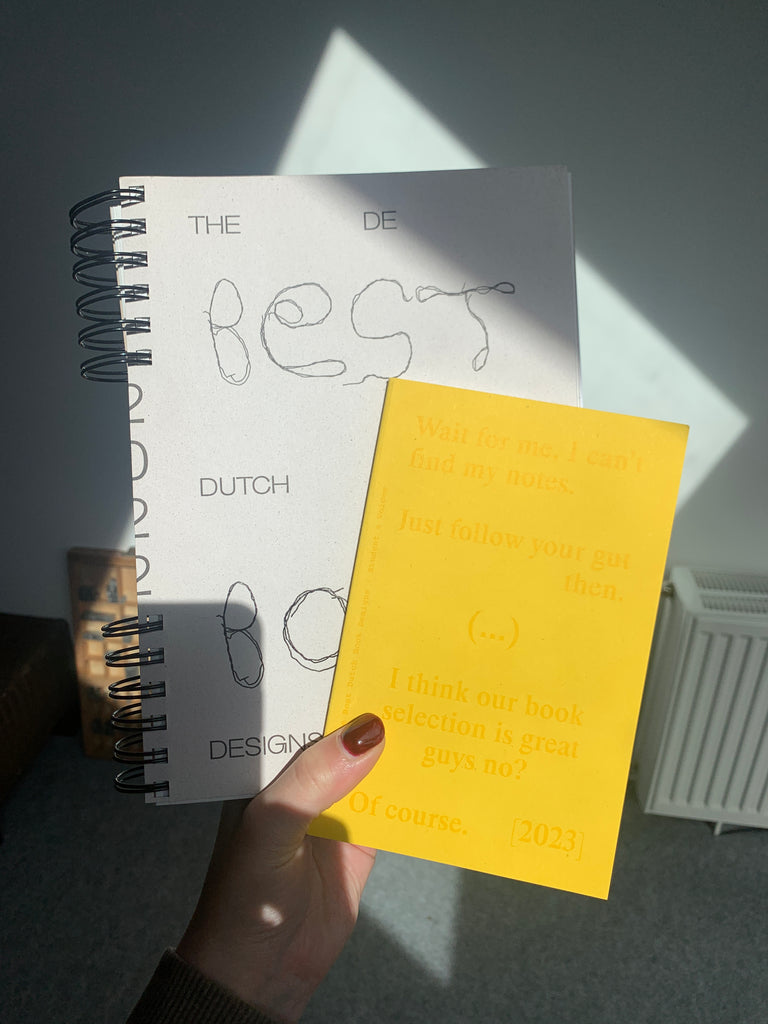 THE DE
BEST
DUTCH
BO
DESIGNS
Wait for me. I can't
find my notes.
Just follow your gut
then.
(...)
I think our book
selection is great
guys no?
Of course. [2023]
Dutch Book Designs
student's